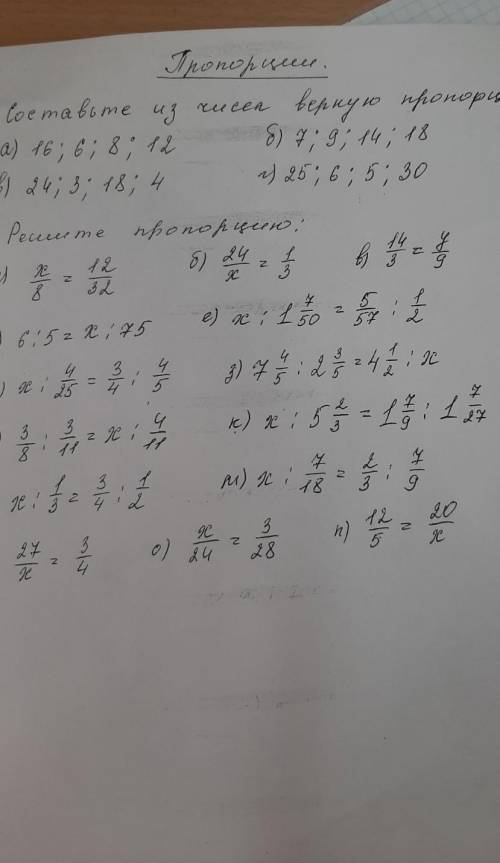 Пропорции.
Составьте из чисел верную пропорц
а) 16; 6; 8; 12 б) 7; 9; 14; 18
в) 24; 3; 18; 4 г) 25; 6; 5; 30
Решите пропорцию:
) x/8 = 12/32 б) 24/x = 1/3 в) 14/3 = y/9
) 6 : 5 = x : 75 е) x : 1 7/50 = 5/57 : 1/2
) x : 4/25 = 3/4 : 4/5 з) 7 4/5 : 2 3/5 = 4 1/2 : x
) 3/8 : 3/11 = x : 4/11 к) x : 5 2/3 = 1 7/9 : 1 7/27
x : 1/3 = 3/4 : 1/2 м) x : 7/18 = 2/3 : 7/9
27/x = 3/4 о) x/24 = 3/28 п) 12/5 = 20/x